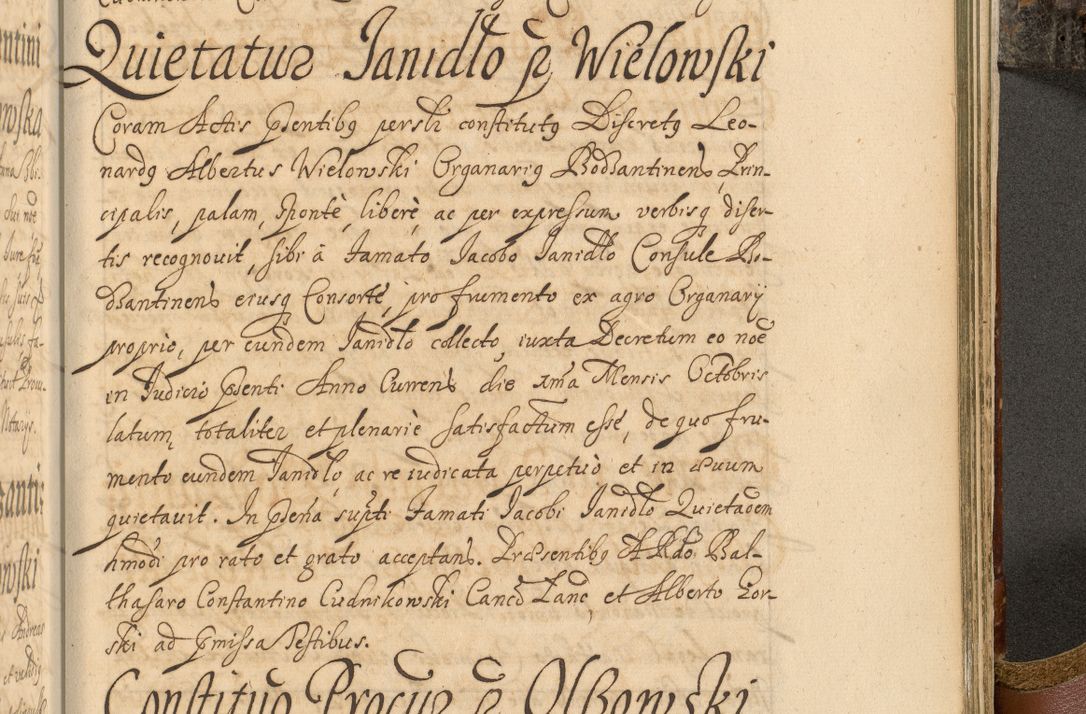 Quietatur Janidło p Wielowski
Coram Actis pñtibq persłr constitutq Discretq Leo-
nardq Albertus Wielowski Organariq Bodzantinens, Prin-
cipalis, palam, spontè, liberè, ac per expressum verbisq diser-
tis recognovit, sibi à Famato Jacobo Janidło Consule Bo-
dzantinens eiusq Consorte, pro frumento ex agro Organarij
proprio, per eundem Janidło collecto, iuxta Decretum eo nõe
in Judicio pñenti Anno Currens die 1ma Mensis Octobris
latum, totaliter et plenariè satisfactum esse, de quo fru-
mento eundem Janidło, ac re iudicata perpetuò et in ævum
quietavit. In pñtia supti Famati Jacobi Janidło Quietaõem
hmodi pro rato et grato acceptans. Præsentibq ARdo Bal-
thasaro Constantino Cudnikowski Cancõ Lanc, et Alberto Gor-
ski ad pmissa Testibus.
Constituo Procur p Olszowski